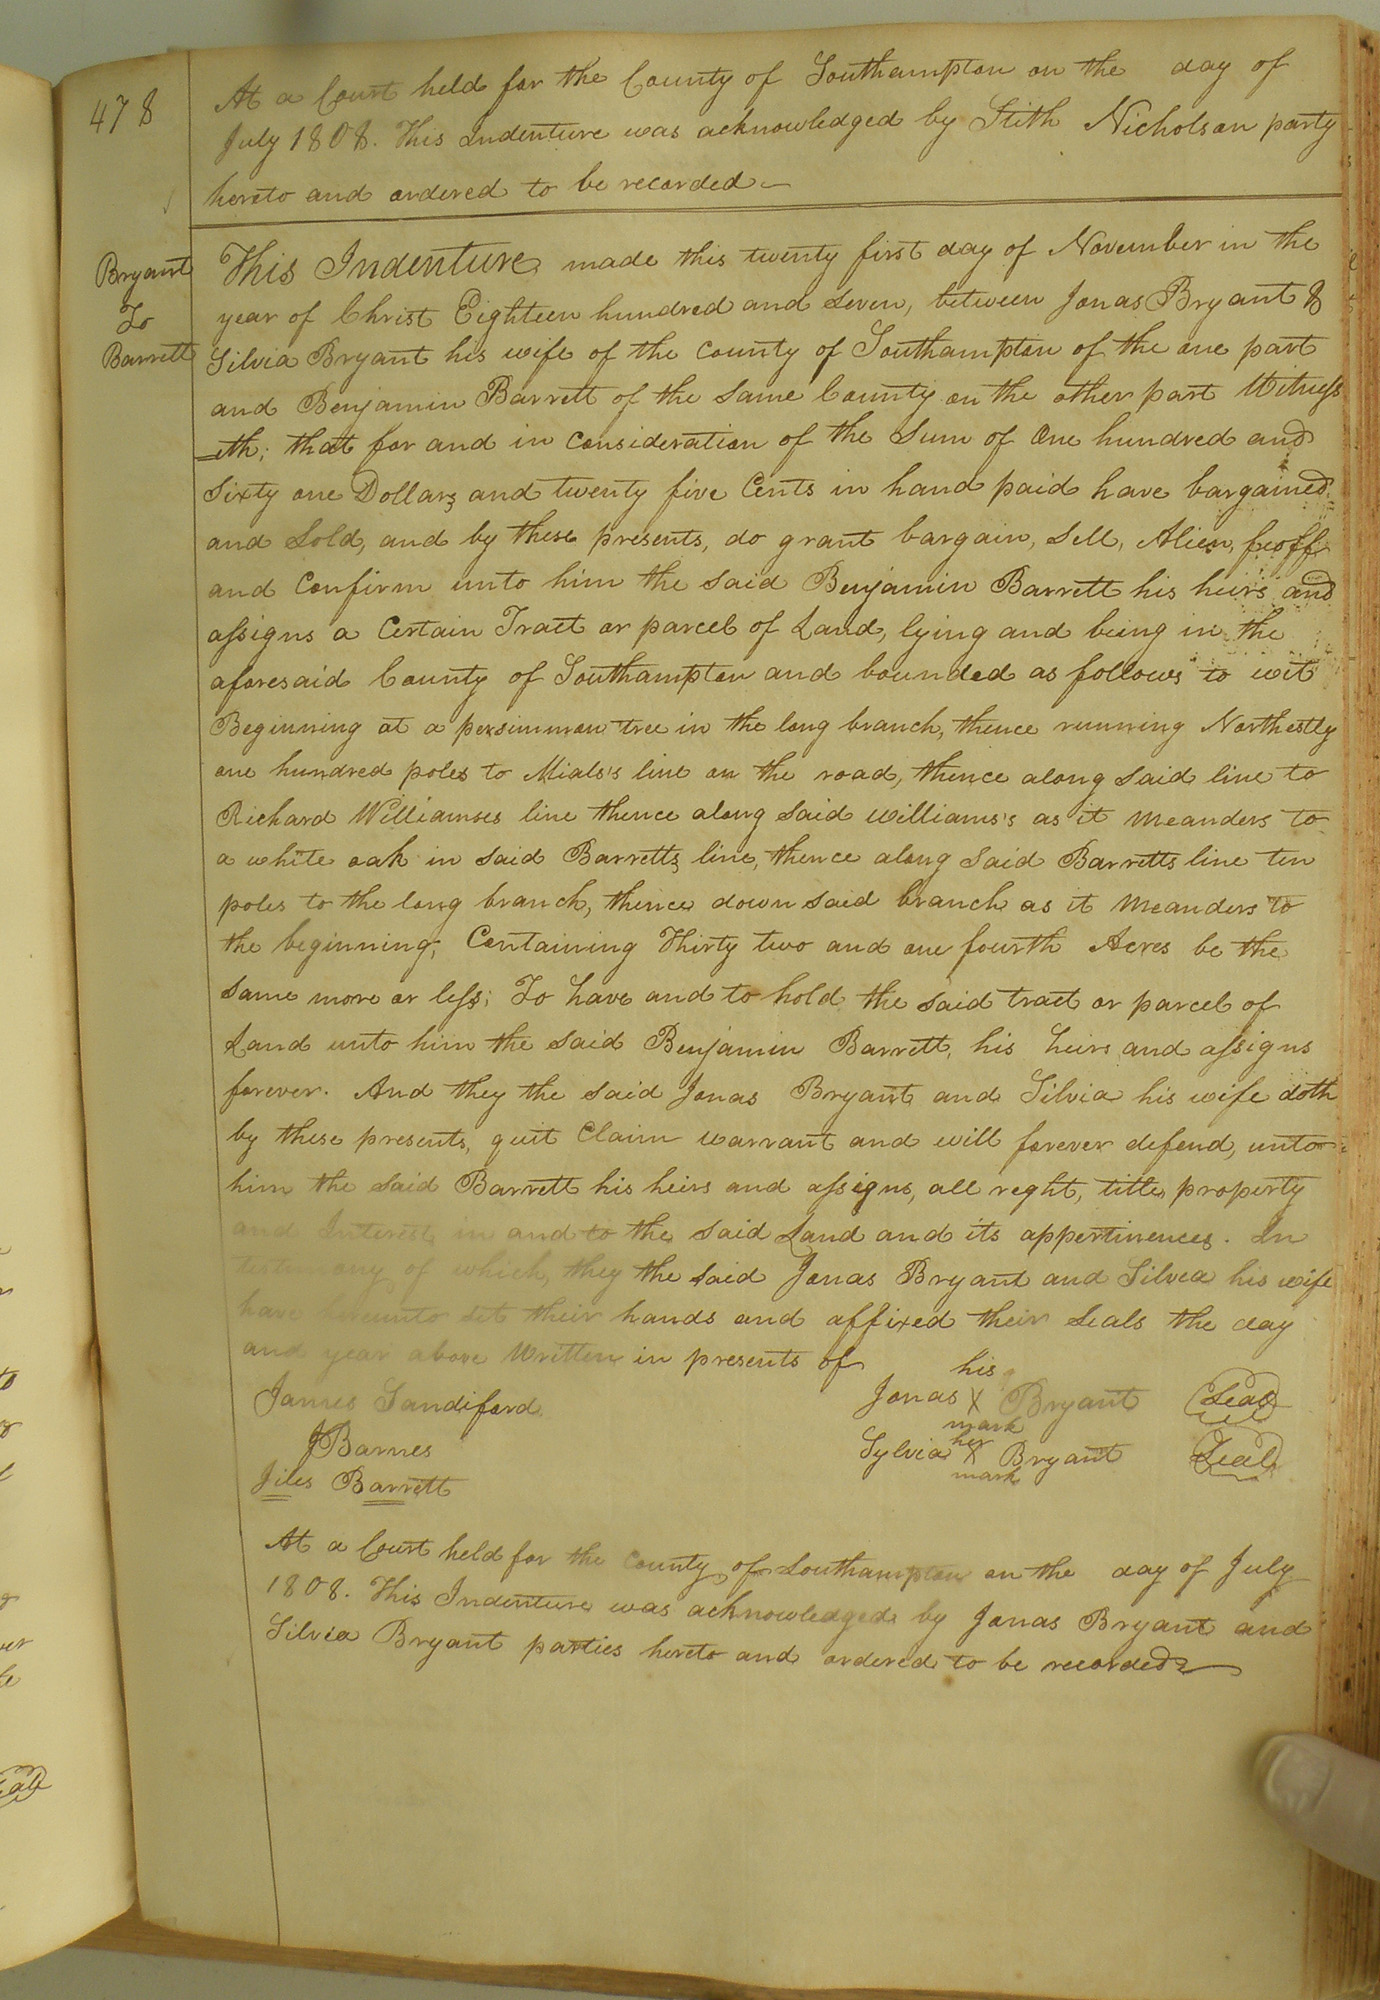 478
At a Court held for the County of Southampton on the day of
July 1808. This Indenture was acknowledged by Stith Nicholson party
hereto and ordered to be recorded
Bryant
To
Barrett
This Indenture made this twenty first day of November in the
year of Christ Eighteen hundred and seven, between Jonas Bryant &
Silvia Bryant his wife of the county of Southampton of the one part
and Benjamin Barrett of the same County on the other part Witness
=eth; that for and in consideration of the sum of One hundred and
sixty one Dollars and twenty five Cents in hand paid have bargained
and Sold, and by these presents, do grant bargain, Sell, Alien, feoff
and Confirm unto him the said Benjamin Barrett his heirs and
assigns a Certain Tract or parcel of Land, lying and being in the
aforesaid County of Southampton and bounded as follows to wit
Beginning at a persimmon tree in the long branch, thence running Northestly
one hundred poles to Mials's line on the road, thence along said line to
Richard Williamses line thence along said williams's as it meanders to
a white oak in said Barretts line, thence along said Barretts line ten
poles to the long branch, thence down said branch as it meanders to
the beginning; Containing Thirty two and one fourth Acres be the
same more or less; To have and to hold the said tract or parcel of
Land unto him the said Benjamin Barrett, his heirs and assigns
forever. And they the said Jonas Bryant and Silvia his wife doth
by these presents, quit Claim warrant and will forever defend, unto
him the said Barrett his heirs and assigns, all reght, title property
and Interest in and to the said Land and its appertinences. In
testimony of which, they the said Jonas Bryant and Silvea his wife
have hereunto set their hands and affixed their seals the day
and year above Written in presents of
his
James Sandiford Jonas X Bryant Seal
mark
JBarnes her
Sylvia X Bryant Seal
Jiles Barrett mark
At a Court held for the County of Southampton on the day of July
1808. This Indenture was acknowledged by Jonas Bryant and
Silvia Bryant parties hereto and ordered to be recorded